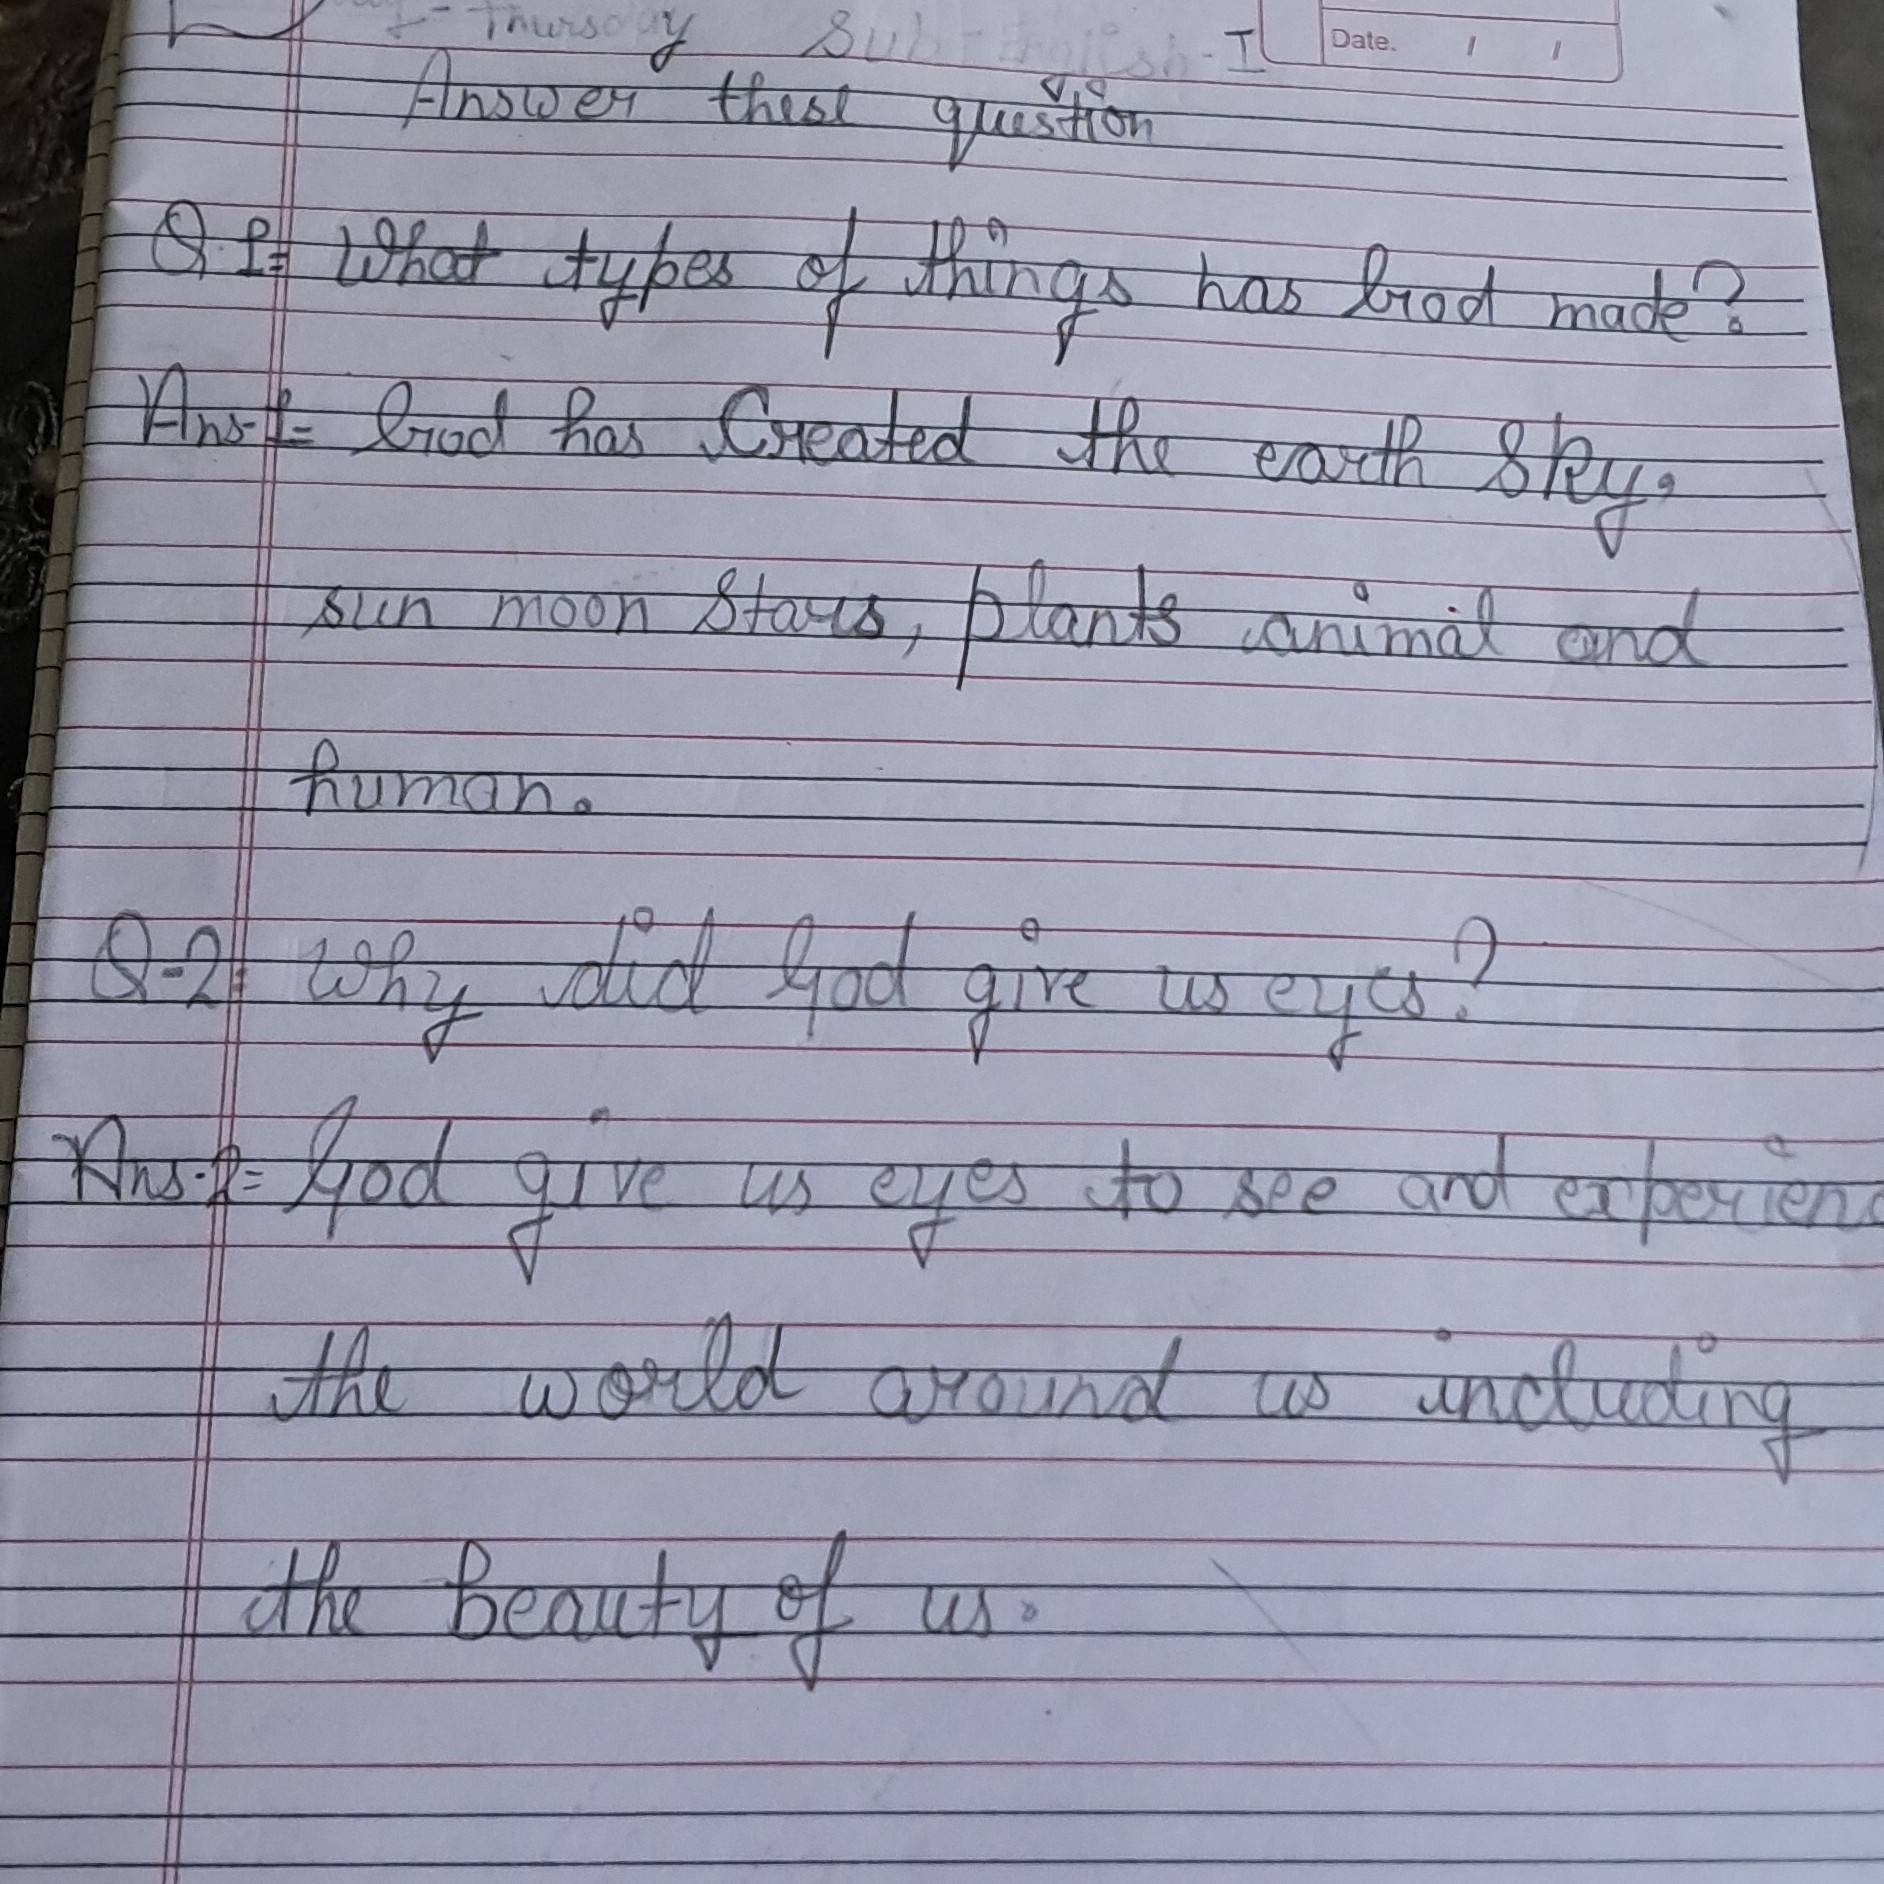 Thursday Sub-English-I
Date. / /
Answer these question
Q.1= What types of things has God made?
Ans-1= God has Created the earth Sky,
sun moon Stars, plants animal and
human.
Q-2= Why did God give us eyes?
Ans.2= God give us eyes to see and experienc
the world around us including
the beauty of us.